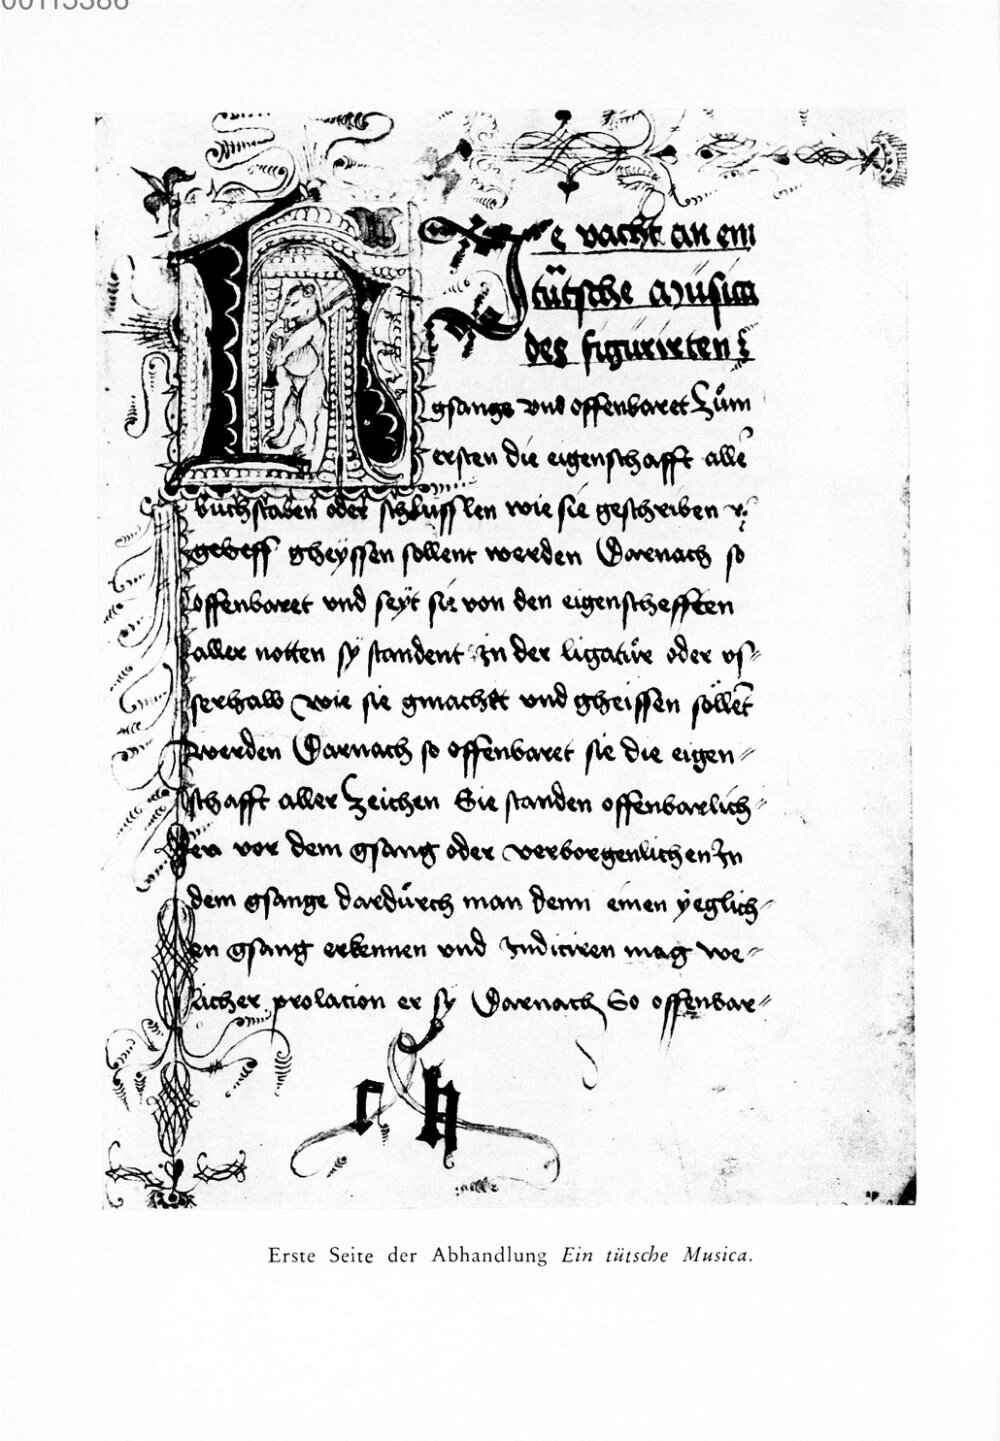 00115386
He vacht an ein
tütsche Musica
des figurirten
gsangs vnd offenbaret Zům
ersten die eigenschafft alle
bůchstaben oder schlüsslen wie sie geschriben
geheyssen sollent werden Darnach so
offenbaret vnd seyt sie von den eigenschefften
aller notten sy standent in der ligatůr oder vs-
serhalb wie sie gmacht vnd gheissen söllent
werden Darnach so offenbaret sie die eigen-
schafft aller Zeichen Sie standen offenbarlich-
en vor dem gsang oder verborgenlichen In
dem gsange dardůrch man denn einen yeglich-
en gsang erkennen vnd Iudiciren mag we-
licher prolacion er sy Darnach So offenbar-
Erste Seite der Abhandlung Ein tütsche Musica.